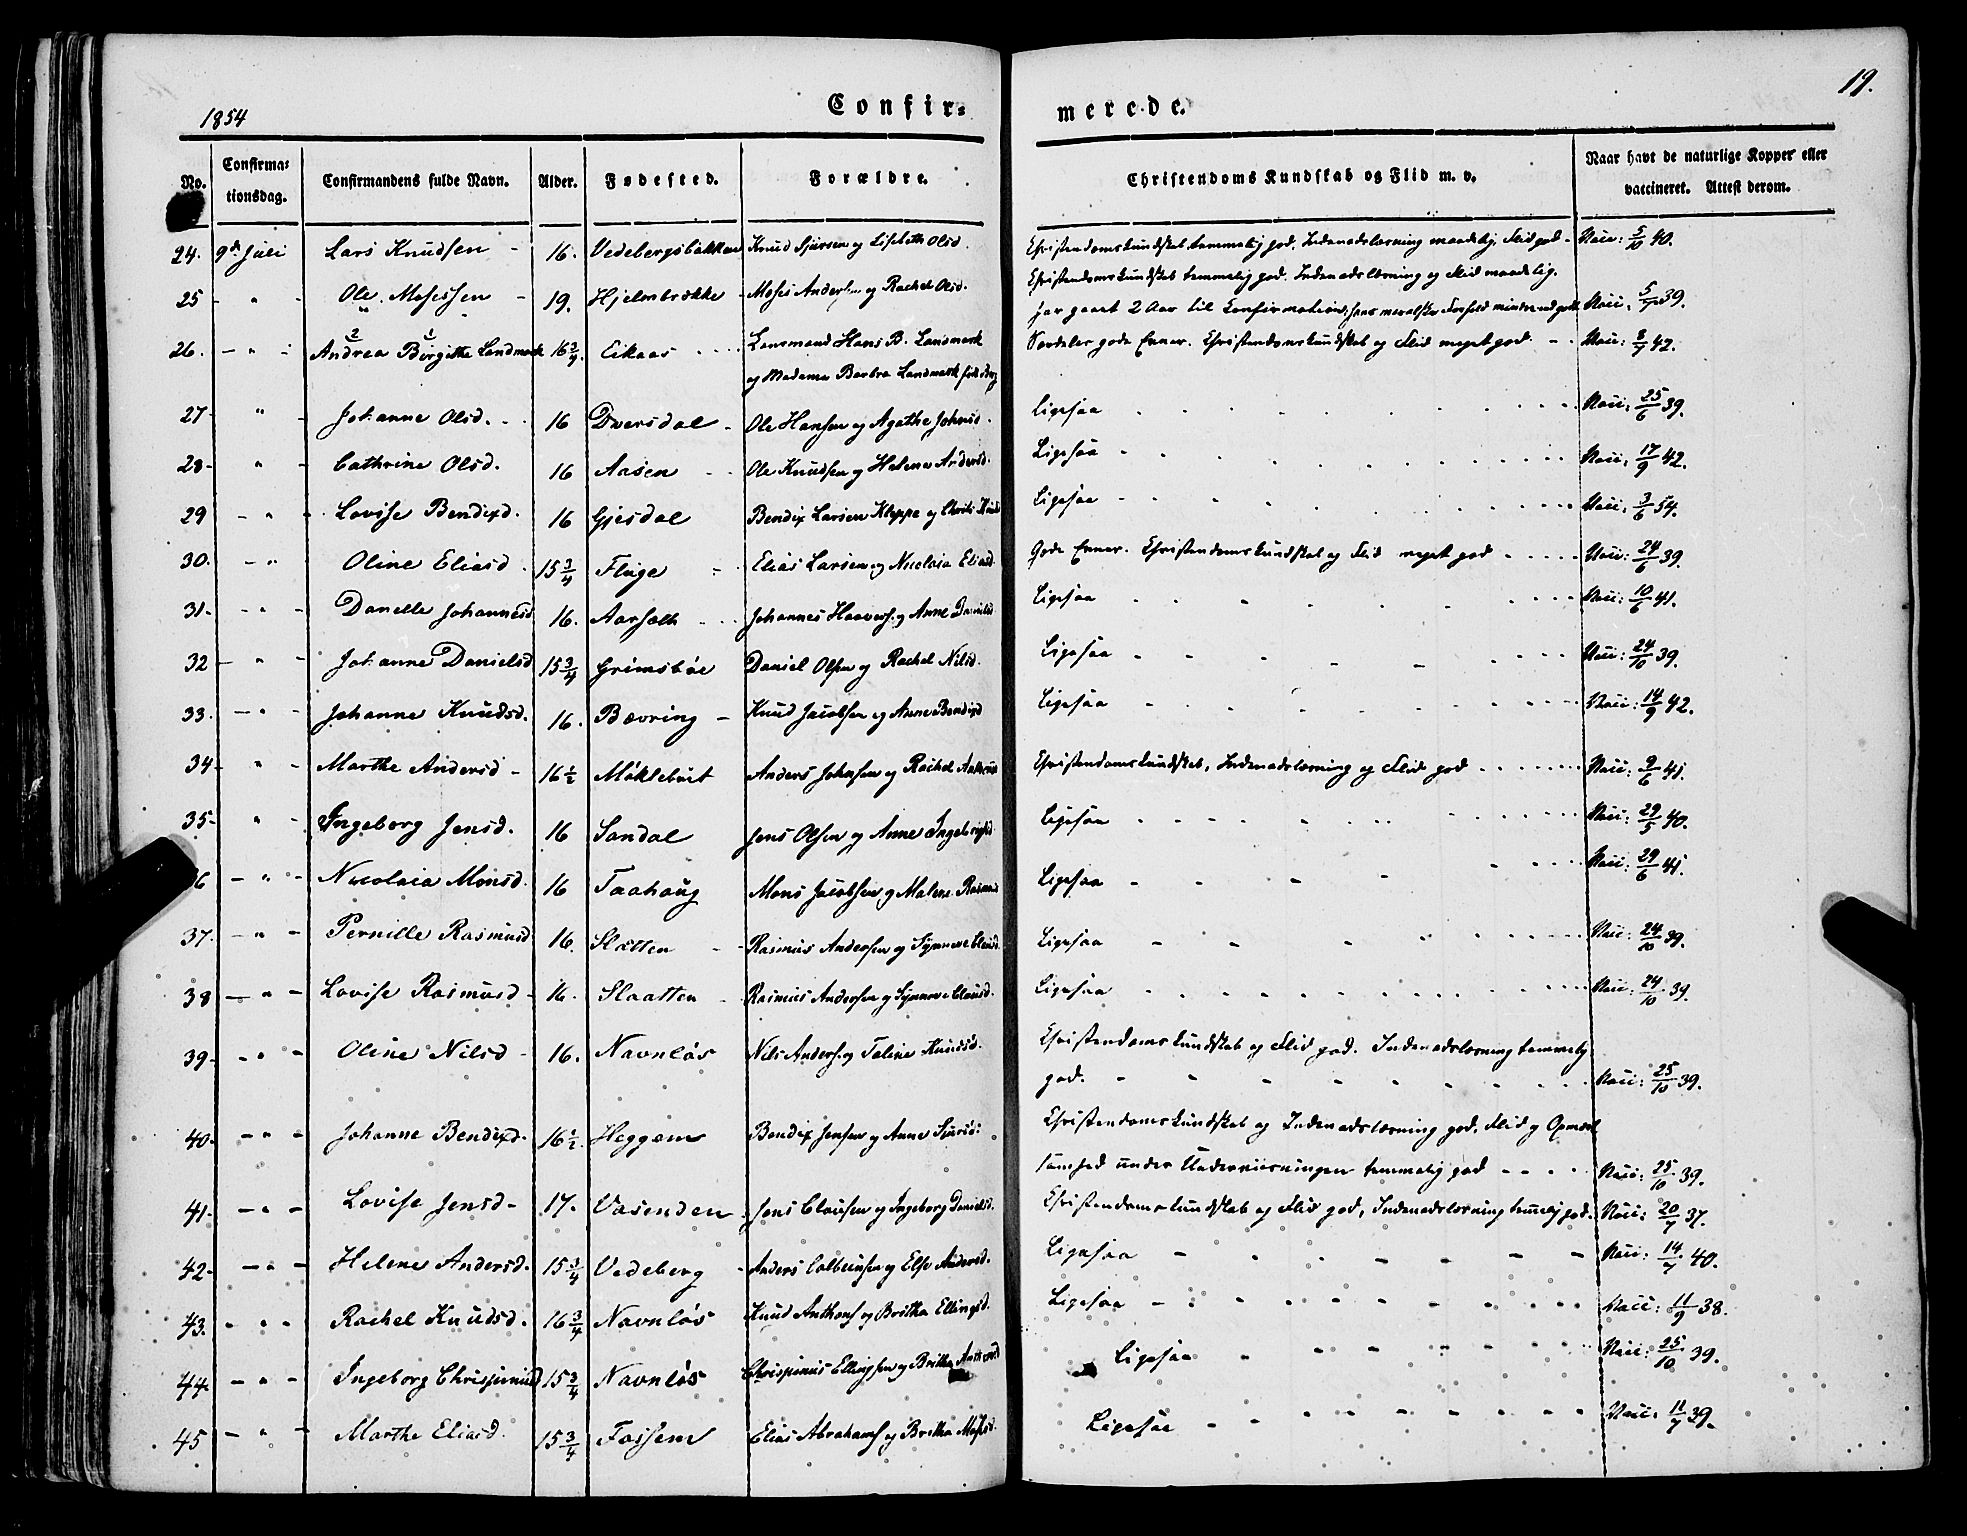 1854
Confir=
merede.
19.
No.
Confirma=
tionsdag.
Confirmandens fulde Navn.
Alder.
Fødested.
Forældre.
Christendoms Kundskab og Flid m. v.
Naar havt de naturlige Kopper eller
vaccineret. Attest derom.
24. 9de Juli Lars Knudsen - 16. Vedebergsbakken Knud Sjursen og Lisbeth Olsd. Christendomskundskab temmelig god. Indenadslæsning maadelig. Flid god - Vacc: 5/10 40.
Christendomskundskab temmelig god. Indenadslæsning og Flid maadelig.
25 - " - Ole Mosessen - 19. Hjelmbrække - Moses Anders. og Rachel Olsd. har gaaet 2 Aar til Confirmation, hans moralske Forhold mindre godt Vacc. 5/7 39.
26. - " - Andrea Birgitte Landmark 16 3/4. Eikaas Lensmand Hans B. Landmark Særdeles gode Evner. Christendomskundskab og Flid meget god. - Vacc: 8/7 42.
og Madame Barbra Landmark
27 - " - Johanne Olsd. 16 Dversdal - Ole Hansen og Agathe Johnsd. Ligesaa Vacc: 25/6 39.
28 - " - Cathrine Olsd. 16 Aasen Ole Knudsen og Helene Andersd. Ligesaa Vacc. 17/9 42.
29 - " - Lovise Bendixd. 16 Gjesdal Bendix Larsen Kleppe og Ligesaa Vacc: 3/6 54.
30. - " - Oline Eliasd. 15 3/4 Fluge Elias Larsen og Nicolaia Eliasd. Gode Evner. Christendomskundskab og Flid meget god Vacc: 24/6 39.
31 - " - Danielle Johannesd 16. Aarseth Johannes Haavers. og Anne Danielsd. Ligesaa Vacc: 10/6 41.
32 - " - Johanne Danielsd 15 3/4 Grimsbøe Daniel Olsen og Rachel Nilsd. Ligesaa Vacc: 24/10 39.
33. - " - Johanne Knudsd. 16. Bævring - Knud Jacobsen og Anne Bendixd Ligesaa Vacc: 14/9 42.
34 - " - Marthe Andersd - 16 1/2 Møklebust Anders Johnsen og Rachel Christendomskundskab, Indenadslæsning og Flid god Vacc: 9/6 41.
35 - " - Ingeborg Jensd. 16 Sandal Jens Olsen og Anne Ingebrigtsd. Ligesaa Vacc: 29/5 40.
6 - " - Nicolaia Monsd. 16 Taahaug Mons Jacobsen og Malene Rasmusd Ligesaa Vacc: 29/6 41.
37. - " - Pernille Rasmusd 16. Slatten Rasmus Andersen og Synneve Clausd. Ligesaa Vacc: 24/10 39.
38 - " - Lovise Rasmusd - 16. Slaatten Rasmus Andersen og Synneve Clausd. Ligesaa Vacc: 24/10 39.
39 - " - Oline Nilsd - 16. Navnløs Nils Anders. og Taline Knudsd. Christendomskundskab og Flid god. Indenadslæsning temmelig
god. Vacc: 25/10 39.
40 - " - Johanne Bendixd. 16 1/2. Heggem Bendix Jensen og Anne Sjursd: Christendomskundskab og Indenadslæsning god. Flid og Opmærk
somhed under Underviisningen temmelig god Vacc: 25/10 39.
41 - " - Lovise Jensd - 17. Vasenden Jens Clausen og Ingeborg Danielsd. Christendomskundskab og Flid god, Indenadslæsning temmelig god. Vacc: 20/7 37.
42 - " - Helene Andersd. 15 3/4 Vedeberg Anders Colbeinsen og Else Andersd. Ligesaa Vacc: 14/7 40.
43. - " - Rachel Knudsd. 16 3/4 Navnløs Knud Anthons og Britha Ellingsd. Ligesaa Vacc: 11/9 38.
44 - " - Ingeborg Chrispinusd 15 3/4 Navnløs Chrispinus Ellingsen og Britha Andersd Ligesaa Vacc: 25/10 39.
45 - " - Marthe Eliasd. 15 3/4 Fossem Elias Abrahams og Britha Mosesd. Ligesaa Vacc: 11/7 39.